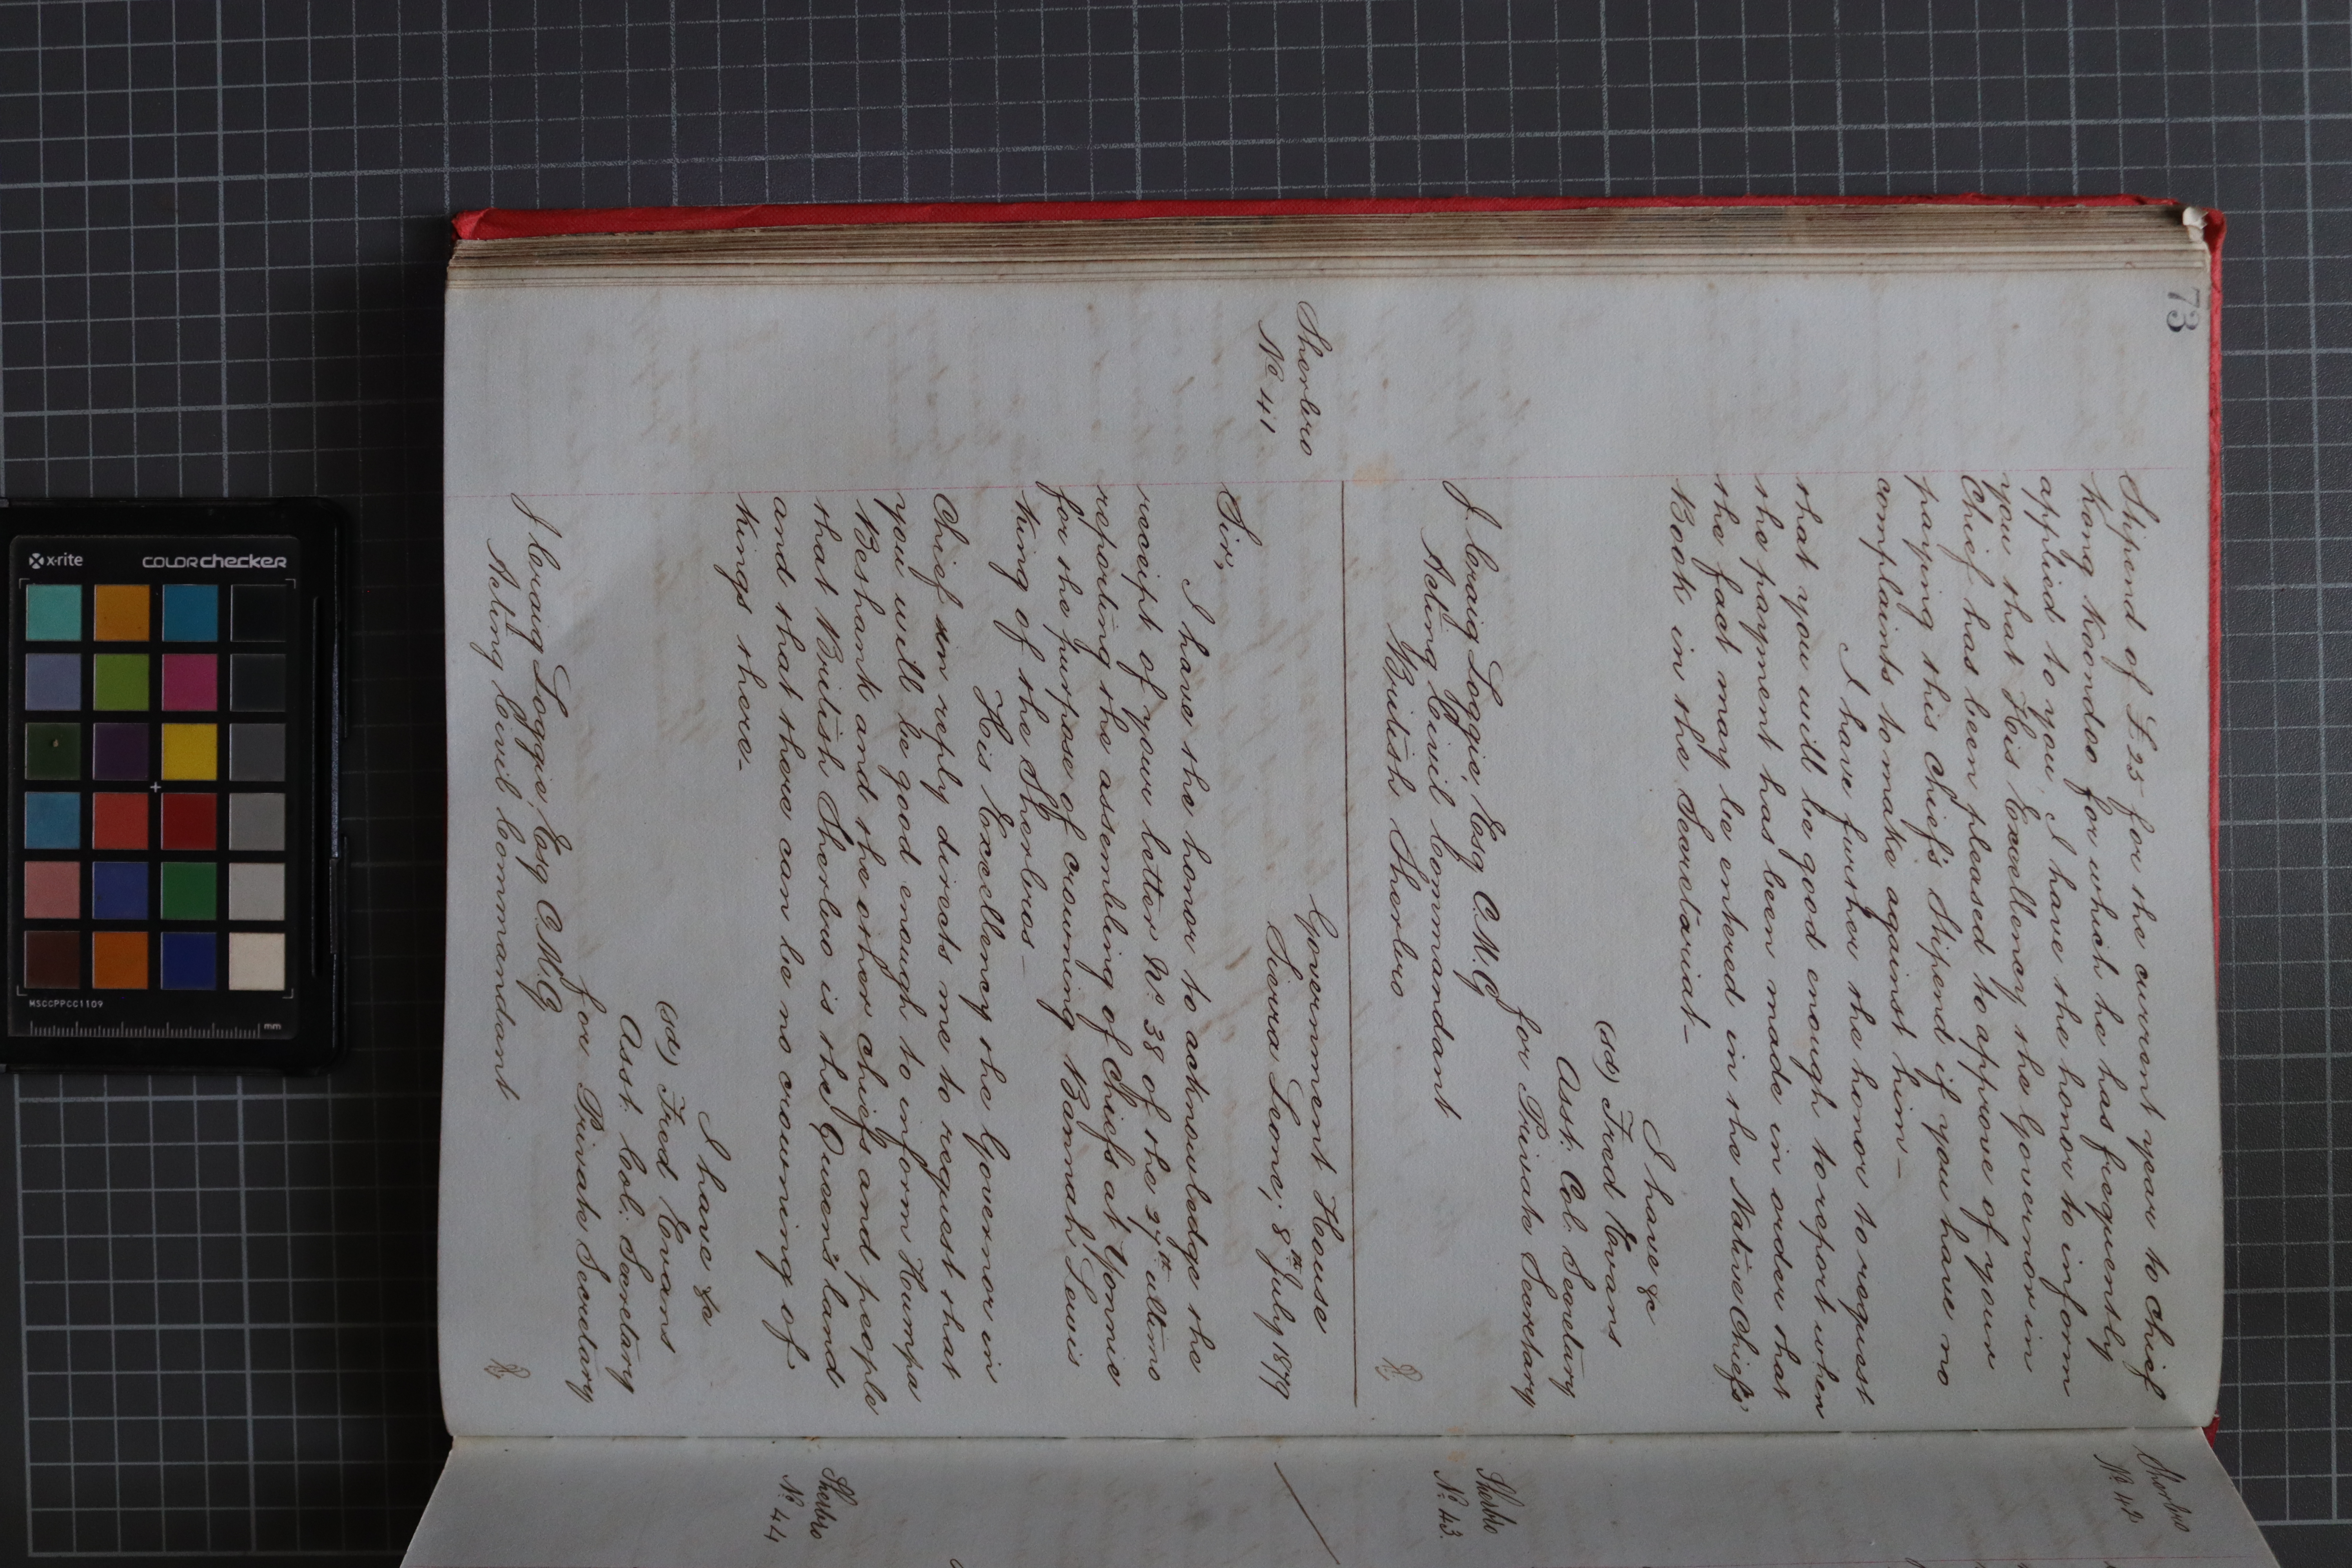 73
Stipend of £25 for the current year to Chief
Kong Koondoo for which he has frequently
applied to you, I have the honor to inform
you that His Excellency the Governor in
Chief has been pleased to approve of your
paying this Chief's Stipend if you have no
complaints to make against him_
I have further the honor to request
that you will be good enough to report when
the payment has been made in order that
the fact may be entered in the Native Chiefs'
Book in the Secretariat_
I have &c
(sd) Fred Evans
Asst. Col. Secretary
for Private Secretary
J Craig Loggie, Esq C.M.G
Acting Civil Commandant
British Sherbro
Government House
Sherbro
Nº 41
Sierra Leone; 8th July 1879
Sir,
I have the honor to acknowledge the
receipt of your letter Nº 38 of the 27th ultimo
reporting the assembling of Chiefs at Yonnie
for the purpose of crowning Bannah Lewis
King of the Sherbros_
His Excellency the Governor in
Chief in reply directs me to request that
you will be good enough to inform Humpa
Beshank and the other chiefs and people
that British Sherbro is the Queen's land
and that there can be no crowning of
Kings there_
I have &c
(sd) Fred Evans
Asst. Col. Secretary
for Private Secretary
J Craig Loggie, Esq C.M.G.
Acting Civil Commandant
Sherbro
Nº 42
Sherbro
Nº 43
Sherbro
Nº 44
x-rite
COLORCHECKER
MSCCPPCC1109
mm